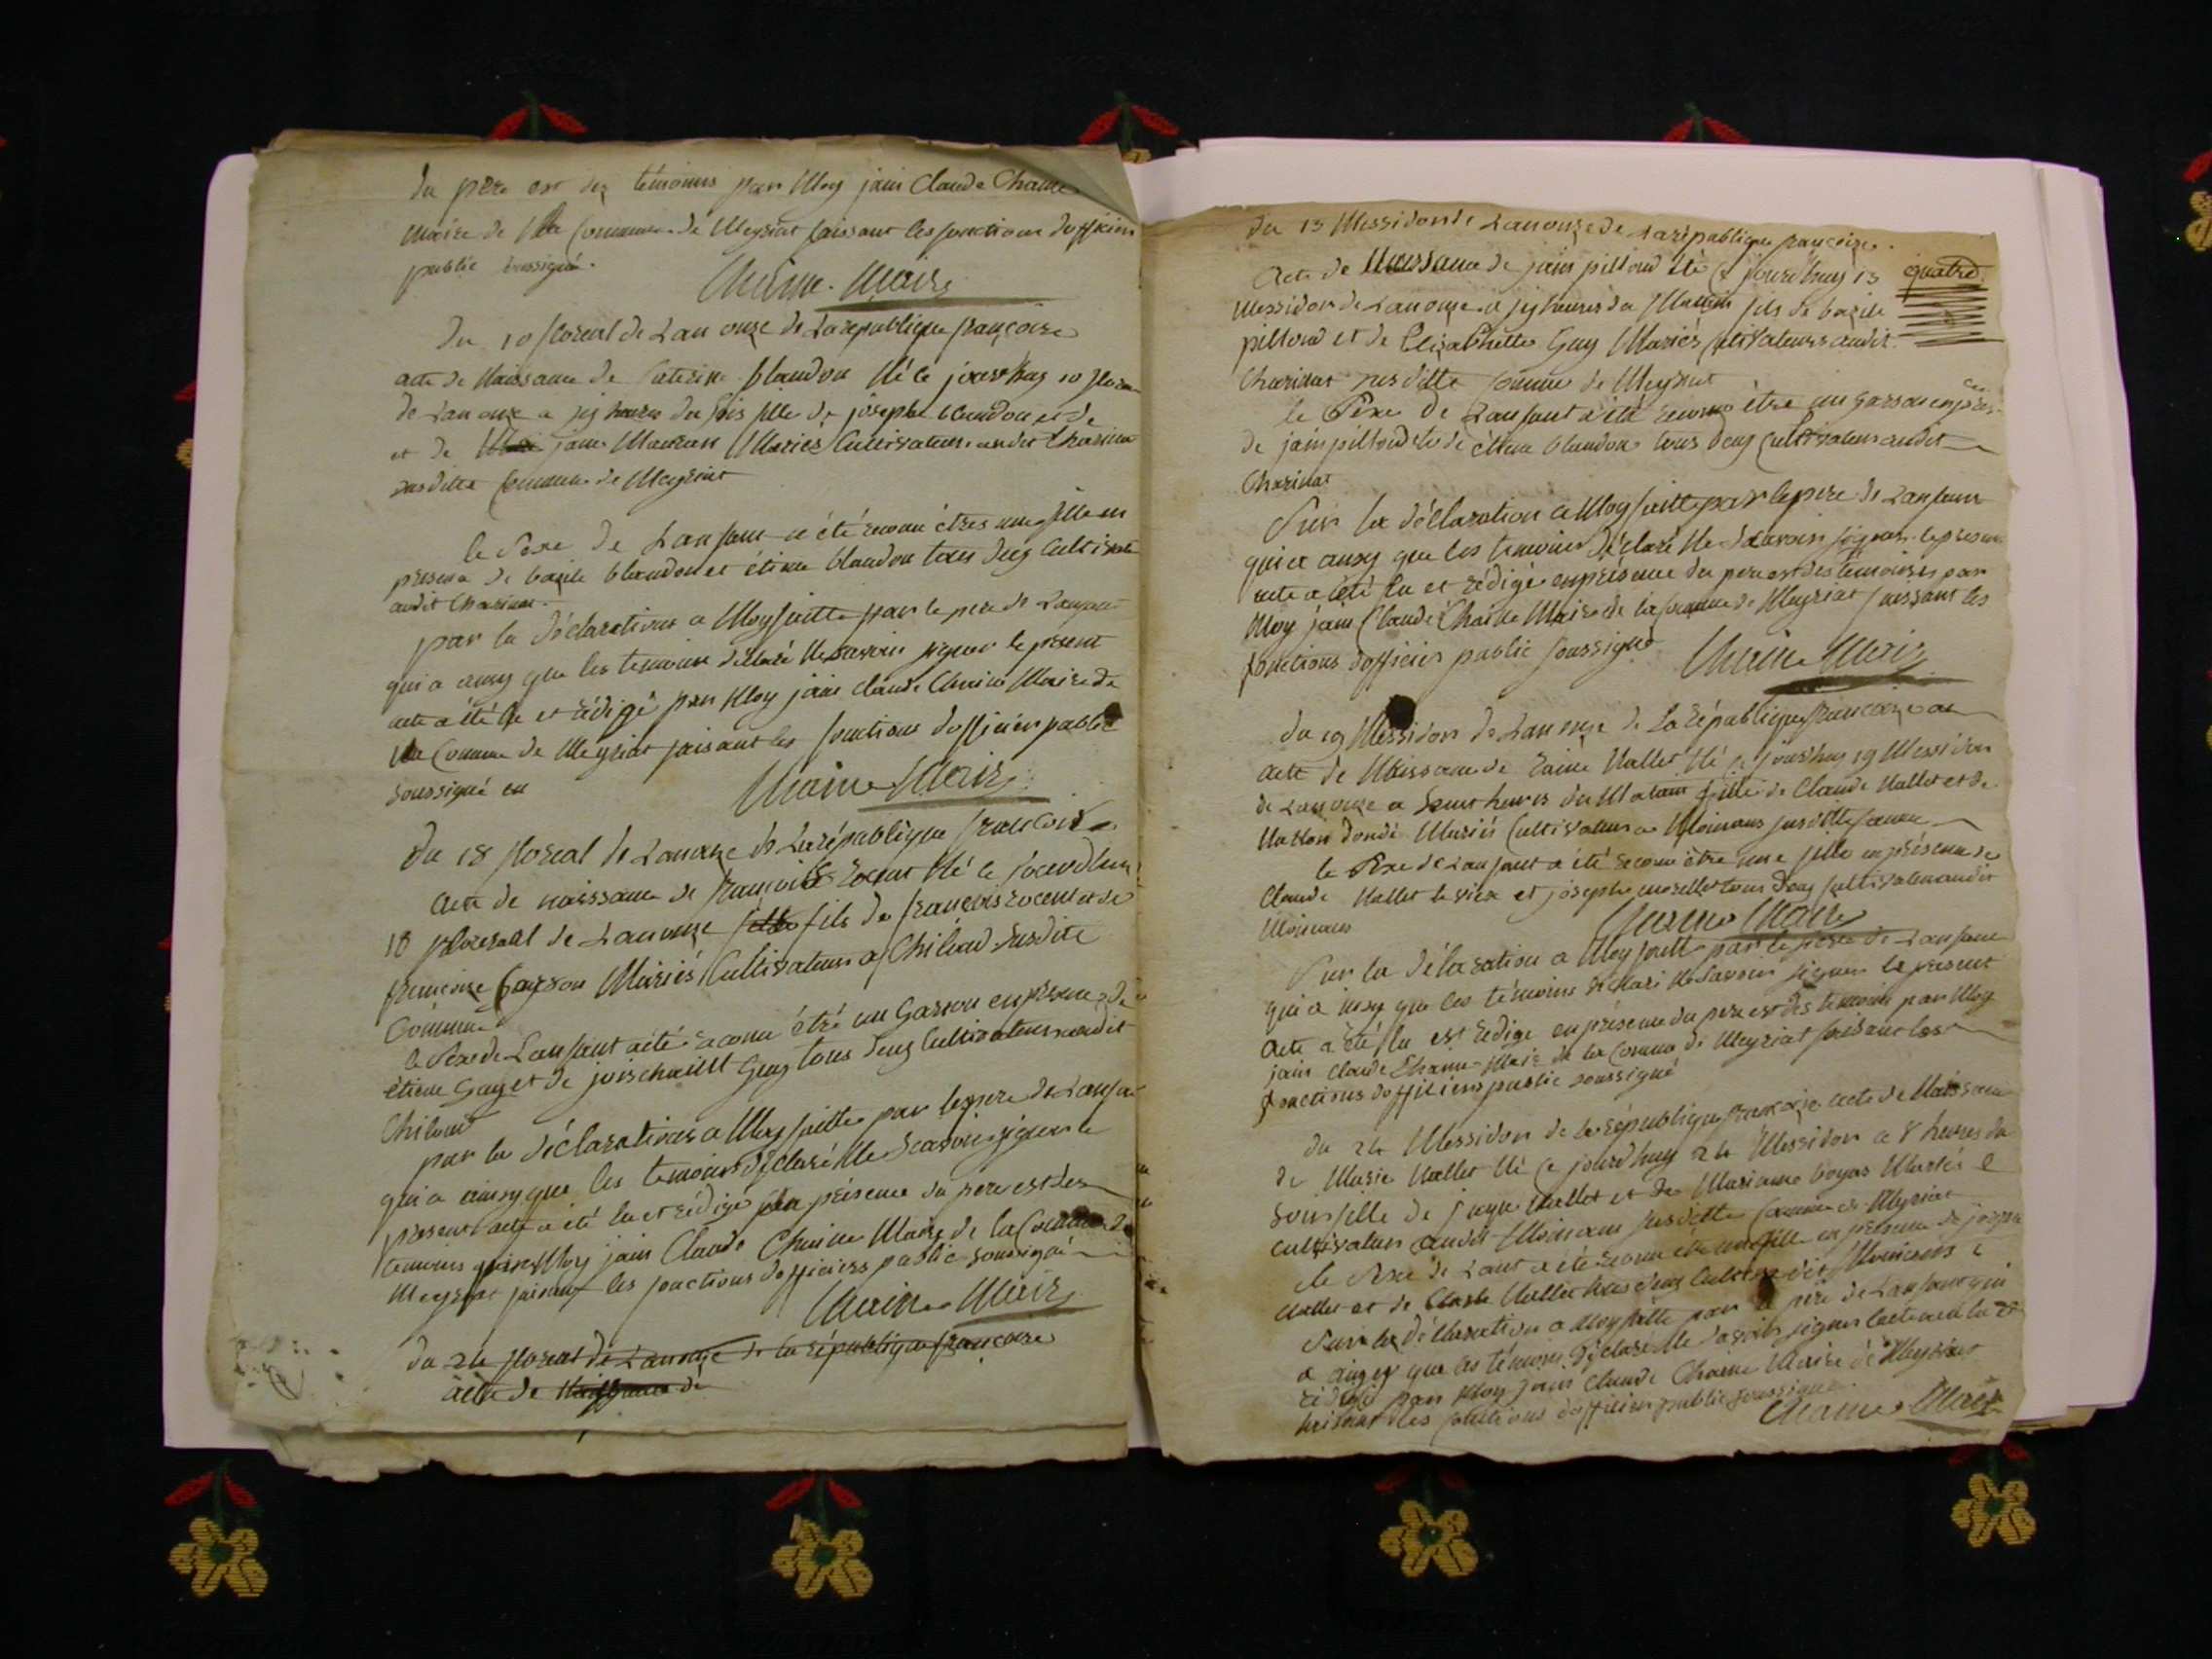 du pere est des témoins par Moy jain Claude Chaine
Maire de la Commune de Meyriat faissant les fonctions dofficier
public soussigné.
Chaine Maire
Du 10 floreal de Lan onze de La republique françoise
acte de Naissance de Caterine blandon Né le jourdhuy 10 floreal
de Lan onze a sis heures du sois fille de joseph blandon et de
et de jane Mauran Mariés Cultivateurs audit Charinas
susditte Commune de Meyriat
le Sexe de Lanfant a été reconu êtres une fille en
presence de basile blandon et étiene blandon tous deus Cultivateurs
audit Charinas.
par la Déclaration a Moy faitte par le pere de Lanfant
qui a ainsy que les temoins déclaré Ne savoir signer le present
acte a été lu et rédigé par Moy jain Claude Chaine Maire de
la Comune de Meyriat faisant les fonctions dofficier public
soussigné
Chaine Maire
Du 18 floreal de Lan onze de La république françoise
acte de naissance de françois Né le jourdhuy
18 floreal de Lan onze fille fils de françois et de
françoise Mariés Cultivateurs a Chiloud susdite
Comune
le Sexe de Lanfant a été reconu étre un Garson en presence de
étiene Guy et de Guy tous deus Cultivateurs audit
Chiloud
par la déclaration a Moy faitte par le pere de Lanfant
qui a ainsy que les temoins déclaré Ne scavoir signer le
present acte a été lu et rédigé en présence du pere est des
temoins par Moy jain Claude Chaine Maire de la Commune de
Meyriat faisant les fonctions dofficiers public soussigné
Chaine Maire
du 24 floreal de Lan onze de la république françoise
acte de Naissance de
Du 13 Messidor de Lan onze de La république françoise.
Acte de Naissance de jain pilloud Né ce jourdhuy 13
quatre
Messidor de Lan onze a sis heures du Matin fils de basile
pilloud et de Elisabhette Guy Mariés Cultivateurs audit
Charinas susditte Comune de Meyriat
le Sexe de Lanfant a été reconu être un garson en présence
de jain pilloud et de étiene blandon tous deus Cultivateurs audit
Charinas
Sur la déclaration a Moy faitte par le pere de Lanfant
qui a ainsy que les temoins Déclaré Ne Savoir signer le present
acte a été lu et rédigé en présence du pere est des temoins par
Moy jain Claude Chaine Maire de la Comune de Meyriat faissant les
fonctions dofficier public soussigné
Chaine Maire
du 19 Messidor de Lan onze de La république françoise
acte de Naissance de Nallet Né ce jourdhuy 19 Messidor
de Lan onze a heures du Matin fille de Claude Nallet et de
dondé Mariés Cultivateurs a Moinans susditte Comune
le Sexe de Lanfant a été reconu être une fille en présence de
Claude Nallet le vieu et joseph tous deus Cultivateurs audit
Moinans
Chaine Maire
Sur la Déclaration a Moy faitte par le pere de Lanfant
qui a insy que les témoins déclaré Ne Savoir signer le present
acte a été lu est rédigé en présence du pere est des temoins par Moy
jain Claude Chaine Maire de la Comune de Meyriat faisant les
fonctions dofficiers public soussigné
Du 24 Messidor de la république françoise acte de Naissance
de Marie Nallet Né ce jourdhuy 24 Messidor a 8 heures du
soir fille de Nallet et de Marianne Mariés
Cultivateurs audit Moinans susditte Comune de Meyriat
le Sexe de Lant a été reconu etre une fille en presence de joseph
Nallet et de Claude Nallet tous deus Moinans
Sur la Déclaration a Moy faitte par le père de Lanfant qui
a ainsy que les témoins Déclaré Ne Savoir signer lacte a été lu et
rédigé par Moy jain Claude Chaine Maire de Meyriat
faisant les fonctions dofficier public soussigné
Chaine Maire